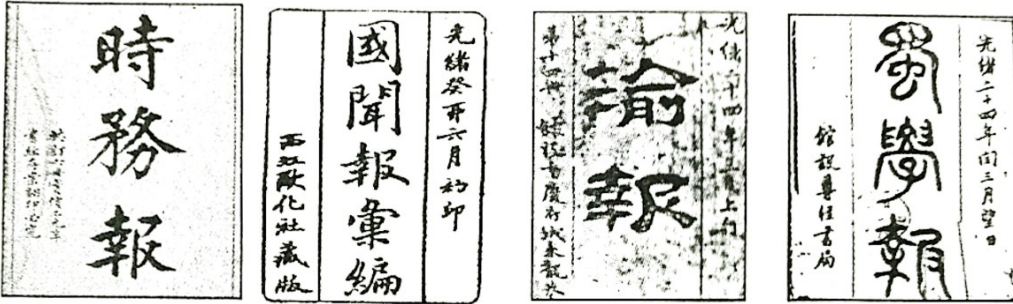 時務報
光緒癸卯六月初印
國聞報彙編
西江歐化社藏版
光緒十四年上旬
渝報
第十四冊
光緒二十四年閏三月望日
蜀學報
館設尊經書局